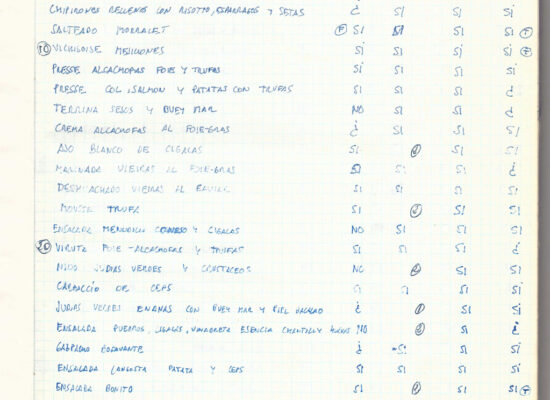 CHIPIRONES RELLENOS CON RISOTTO, ESPARRAGOS Y SETAS ¿ SI SI SI
SALTEADO F SI SI SI SI F
10 VICHISOISE MEJILLONES SI SI SI SI F
PRESSE ALCACHOFAS FOIE Y TRUFAS SI SI SI SI
PRESSE COL, SALMON Y PATATAS CON TRUFAS SI SI SI ¿
TERRINA SESOS Y BUEY MAR NO SI SI ¿
CREMA ALCACHOFAS AL FOIE-GRAS ¿ SI SI SI
AJO BLANCO DE CIGALAS SI SI SI
VIEIRAS AL FOIE-GRAS SI SI SI ¿
VIEIRAS AL SI SI SI SI
MOUSSE TRUFA SI SI SI
ENSALADA Y CIGALAS NO SI SI SI
20 VIRUTA FOIE-ALCACHOFAS Y TRUFAS SI SI SI ¿
NIDO JUDIAS VERDES Y CRUSTACEOS NO SI SI
CARPACCIO DE CEPS SI SI SI SI
JUDIAS VERDES ENANAS CON BUEY MAR Y ¿ SI SI
ENSALADA PUERROS, VINAGRETA ESENCIA NO SI ¿
GASPACHO BOGAVANTE ¿ SI SI SI
ENSALADA LANGOSTA PATATA Y CEPS SI SI SI SI
ENSALADA BONITO SI SI SI